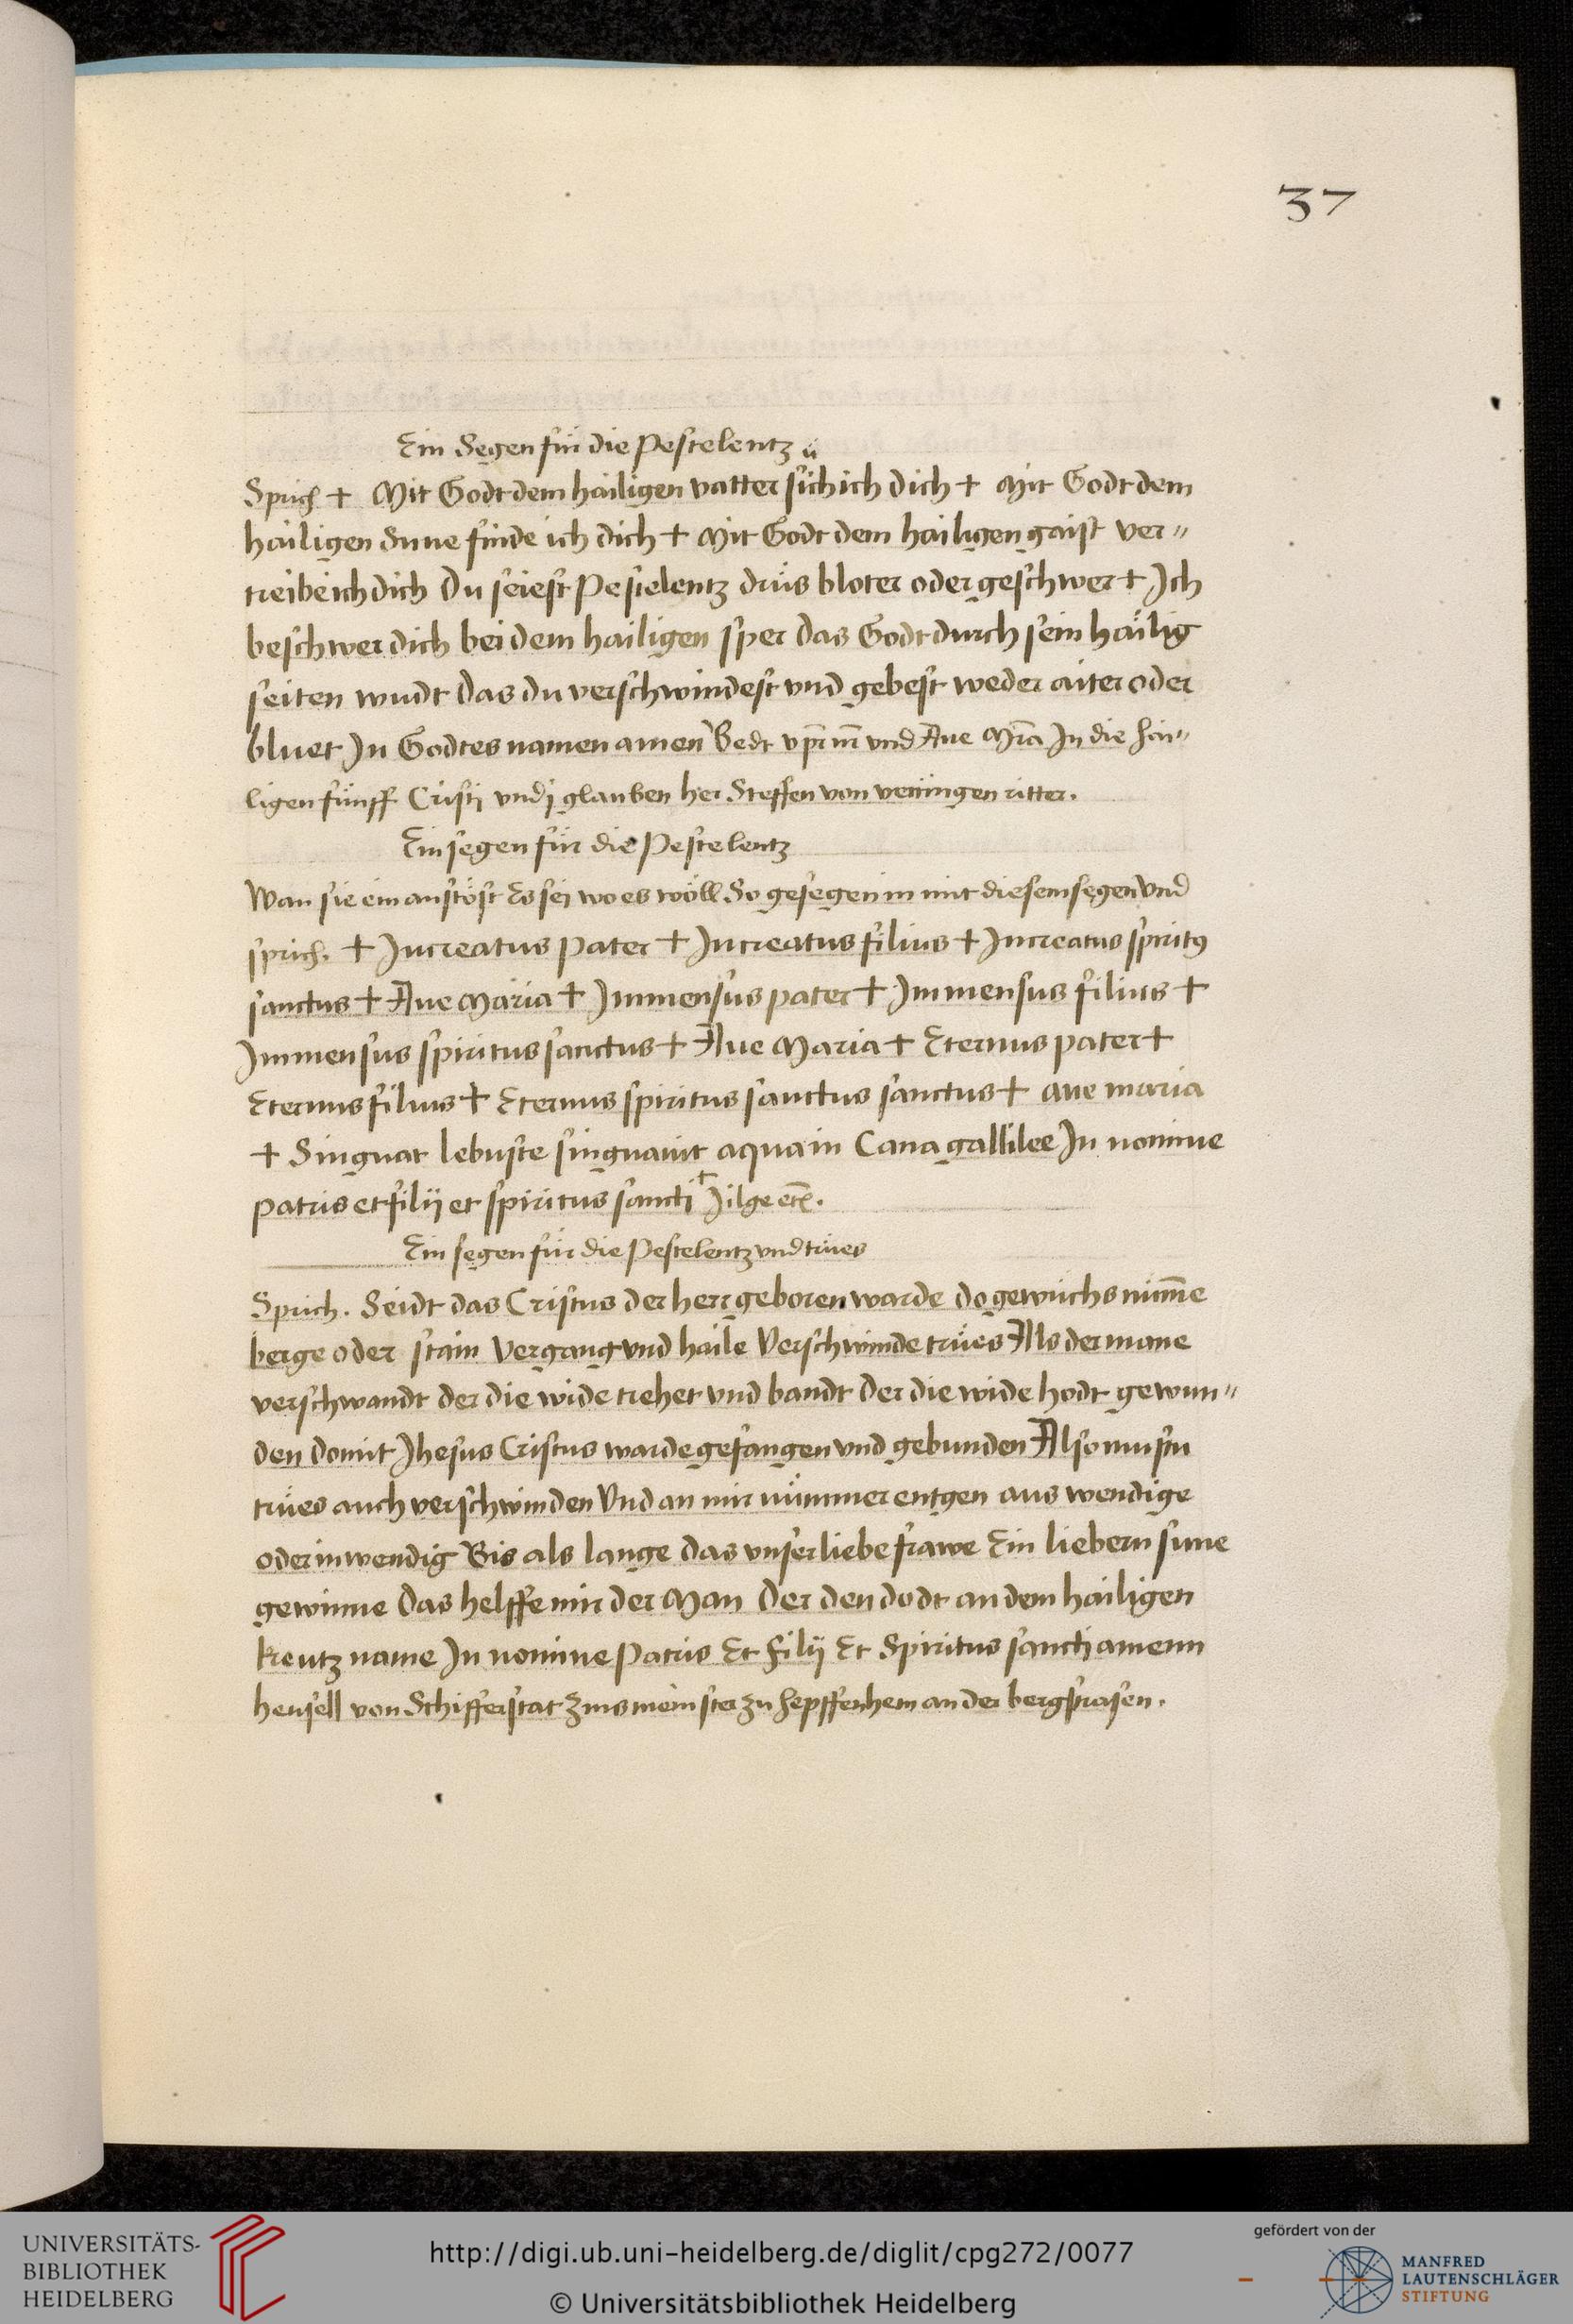 37
Ein Segen für die Pestelentz
Sprich + Mit Godt dem hailigen vatter sich ich dich + Mit Godt dem
hailigen Sune finde ich dich + Mit Godt dem hailigen gaist ver"
treibe ich dich Du seiest Pestelentz drüs bloter oder geschwer + Ich
beschwer dich bei dem hailigen sper das Godt durch sein hailig
seiten wudt das du verschwindest vnd gebest weder aiter oder
bluet In Godtes namen amen Bedt v pr̄ nr̄ vnd Aue Mr̄a In die hai"
ligen fünff Cristj vnd j glauben her Steffen von veningen ritter.
Ein segen für die Pestelentz
Wan sie ein anstöst Es sei wo es wöll So gesegen in mit diesem segen vnd
sprich. + Increatus pater + Increatus filius + Increatus spiritꝰ
sanctus + Aue Maria + Immensus pater + Immensus filius +
Immensus spiritus sanctus + Aue Maria + Eternus pater +
Eternus filius + Eternus spiritus sanctus sanctus + aue maria
+ Singuat lebuste singnauit aqua in Cana gallilee In nomine
patris et filij et spiritus sancti + Jilge etc̄.
Ein segen für die Pestelentz vnd trües
Sprich. Seidt das Cristus der herr geboren warde do gewuchs nim̄e
berge oder stain Vergang vnd haile Verschwinde trües Als der mane
verschwandt der die wide trehet vnd bandt Der die wide hodt gewun"
den domit Jhesus Cristus warde gefangen vnd gebunden Also mustu
trües auch verschwinden Vnd an mir nümmer entgen aus wendige
oder inwendig Bis als lange das vnser liebe frawe Ein liebern sune
gewinne Das helffe mir der Man Der den dodt an dem hailigen
kreutz name In nomine Patris Et filij Et Spiritus sancti amenn
hensell von Schifferstat Zinsmeinster zu hepffenhem an der bergstrasen.
UNIVERSITÄTS-
BIBLIOTHEK
HEIDELBERG
http://digi.ub.uni-heidelberg.de/diglit/cpg272/0077
© Universitätsbibliothek Heidelberg
gefördert von der
MANFRED
LAUTENSCHLÄGER
STIFTUNG